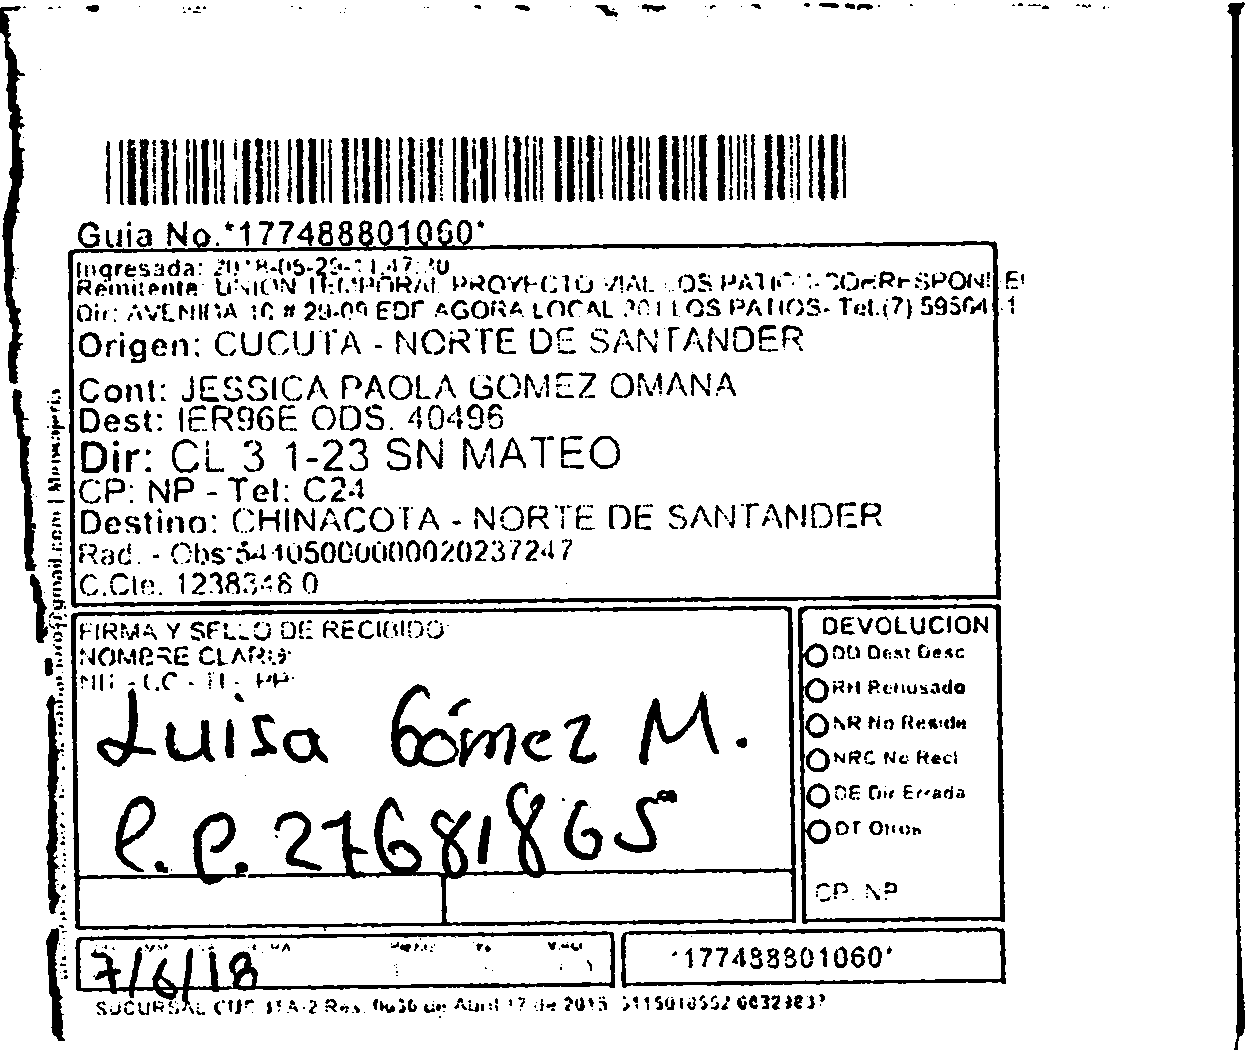 Guia No.*177488801060*
Ingresada: 2018-05-29-11.47
Remitente: UNION TEMPORAL PROYECTO VIAL LOS PATIOS
Dir: AVENIDA 10 # 29-09 EDF AGORA LOCAL 201 LOS PATIOS- Tel.(7)
Origen: CUCUTA - NORTE DE SANTANDER
Cont: JESSICA PAOLA GOMEZ OMANA
Dest: IER96E ODS. 40496
Dir: CL 3 1-23 SN MATEO
CP: NP - Tel: C24
Destino: CHINACOTA - NORTE DE SANTANDER
Rad. - Obs
C.Cte. 1238348 0
FIRMA Y SELLO DE RECIBIDO
NOMBRE CLARO
NIT - CC - TI - PP
Luisa Gómez M.
C.C. 27681865
DEVOLUCION
DD Dest Desc
RH Rehusado
NR No Reside
NRC No Recl
DE Dir Errada
DT Otros
CP. NP
7/6/18
*177488801060*
SUCURSAL CUCUTA-2 Res. de Abril 17 de
| Mensajeria